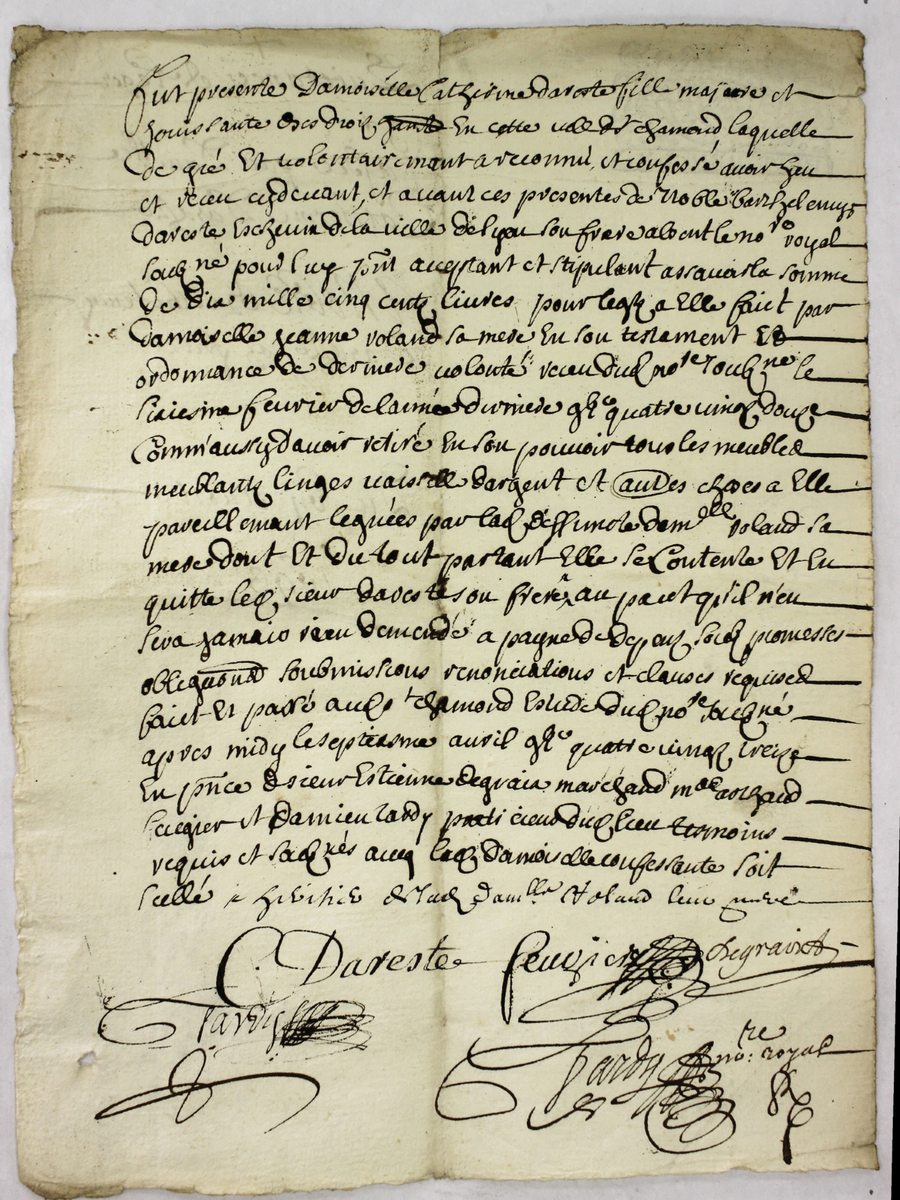 fut presente Damoiselle Catherine dareste fille majeure et
jouissante de ses droiz en cette ville de St chamond laquelle
de gré Et volontairemant a reconnu, et confessé avoir heu
et receu cydevant, et avant ces presentes de Noble barthelemy
dareste Eschevin de la ville de lyon son frere absent le nore royal
soubzné pour luy pnt acceptant et stipulant assavoir la somme
de dix mille cinq centz livres pour legz a Elle faict par
damoiselle jeanne voland sa mere En son testament Et
ordonnance de derniere volonté receu dud nore soubzné le
fevrier de lannée derniere quatre vingz douze
Comm'aussy davoir retiré En son pouvoir tous les meubles
meublantz linges vaisselle dargent et aues choses a Elle
pareillemant leguées par lad deffuncte damlle voland sa
mere dont Et du tout partant Elle se Contente Et En
quitte led sieur dareste son frere, au pact qu'il n'en
sera jamais rien demendé a payne de despenz soubz promesses
obligaons soubmissions renonciations et clauses requises
faict Et passé aud St chamond Estude dud nore soubzné
apres midy le septiesme avril quatre vingz treize
En pnce de sieur Estienne degraix marchand
et damien tardy praticien dud lieu tesmoins
requis et soubznés avec lad damoiselle confessante soit
scellé heritier de lad damlle Voland leur mere
C Dareste Degraix
Tardy
Tardy nore royal